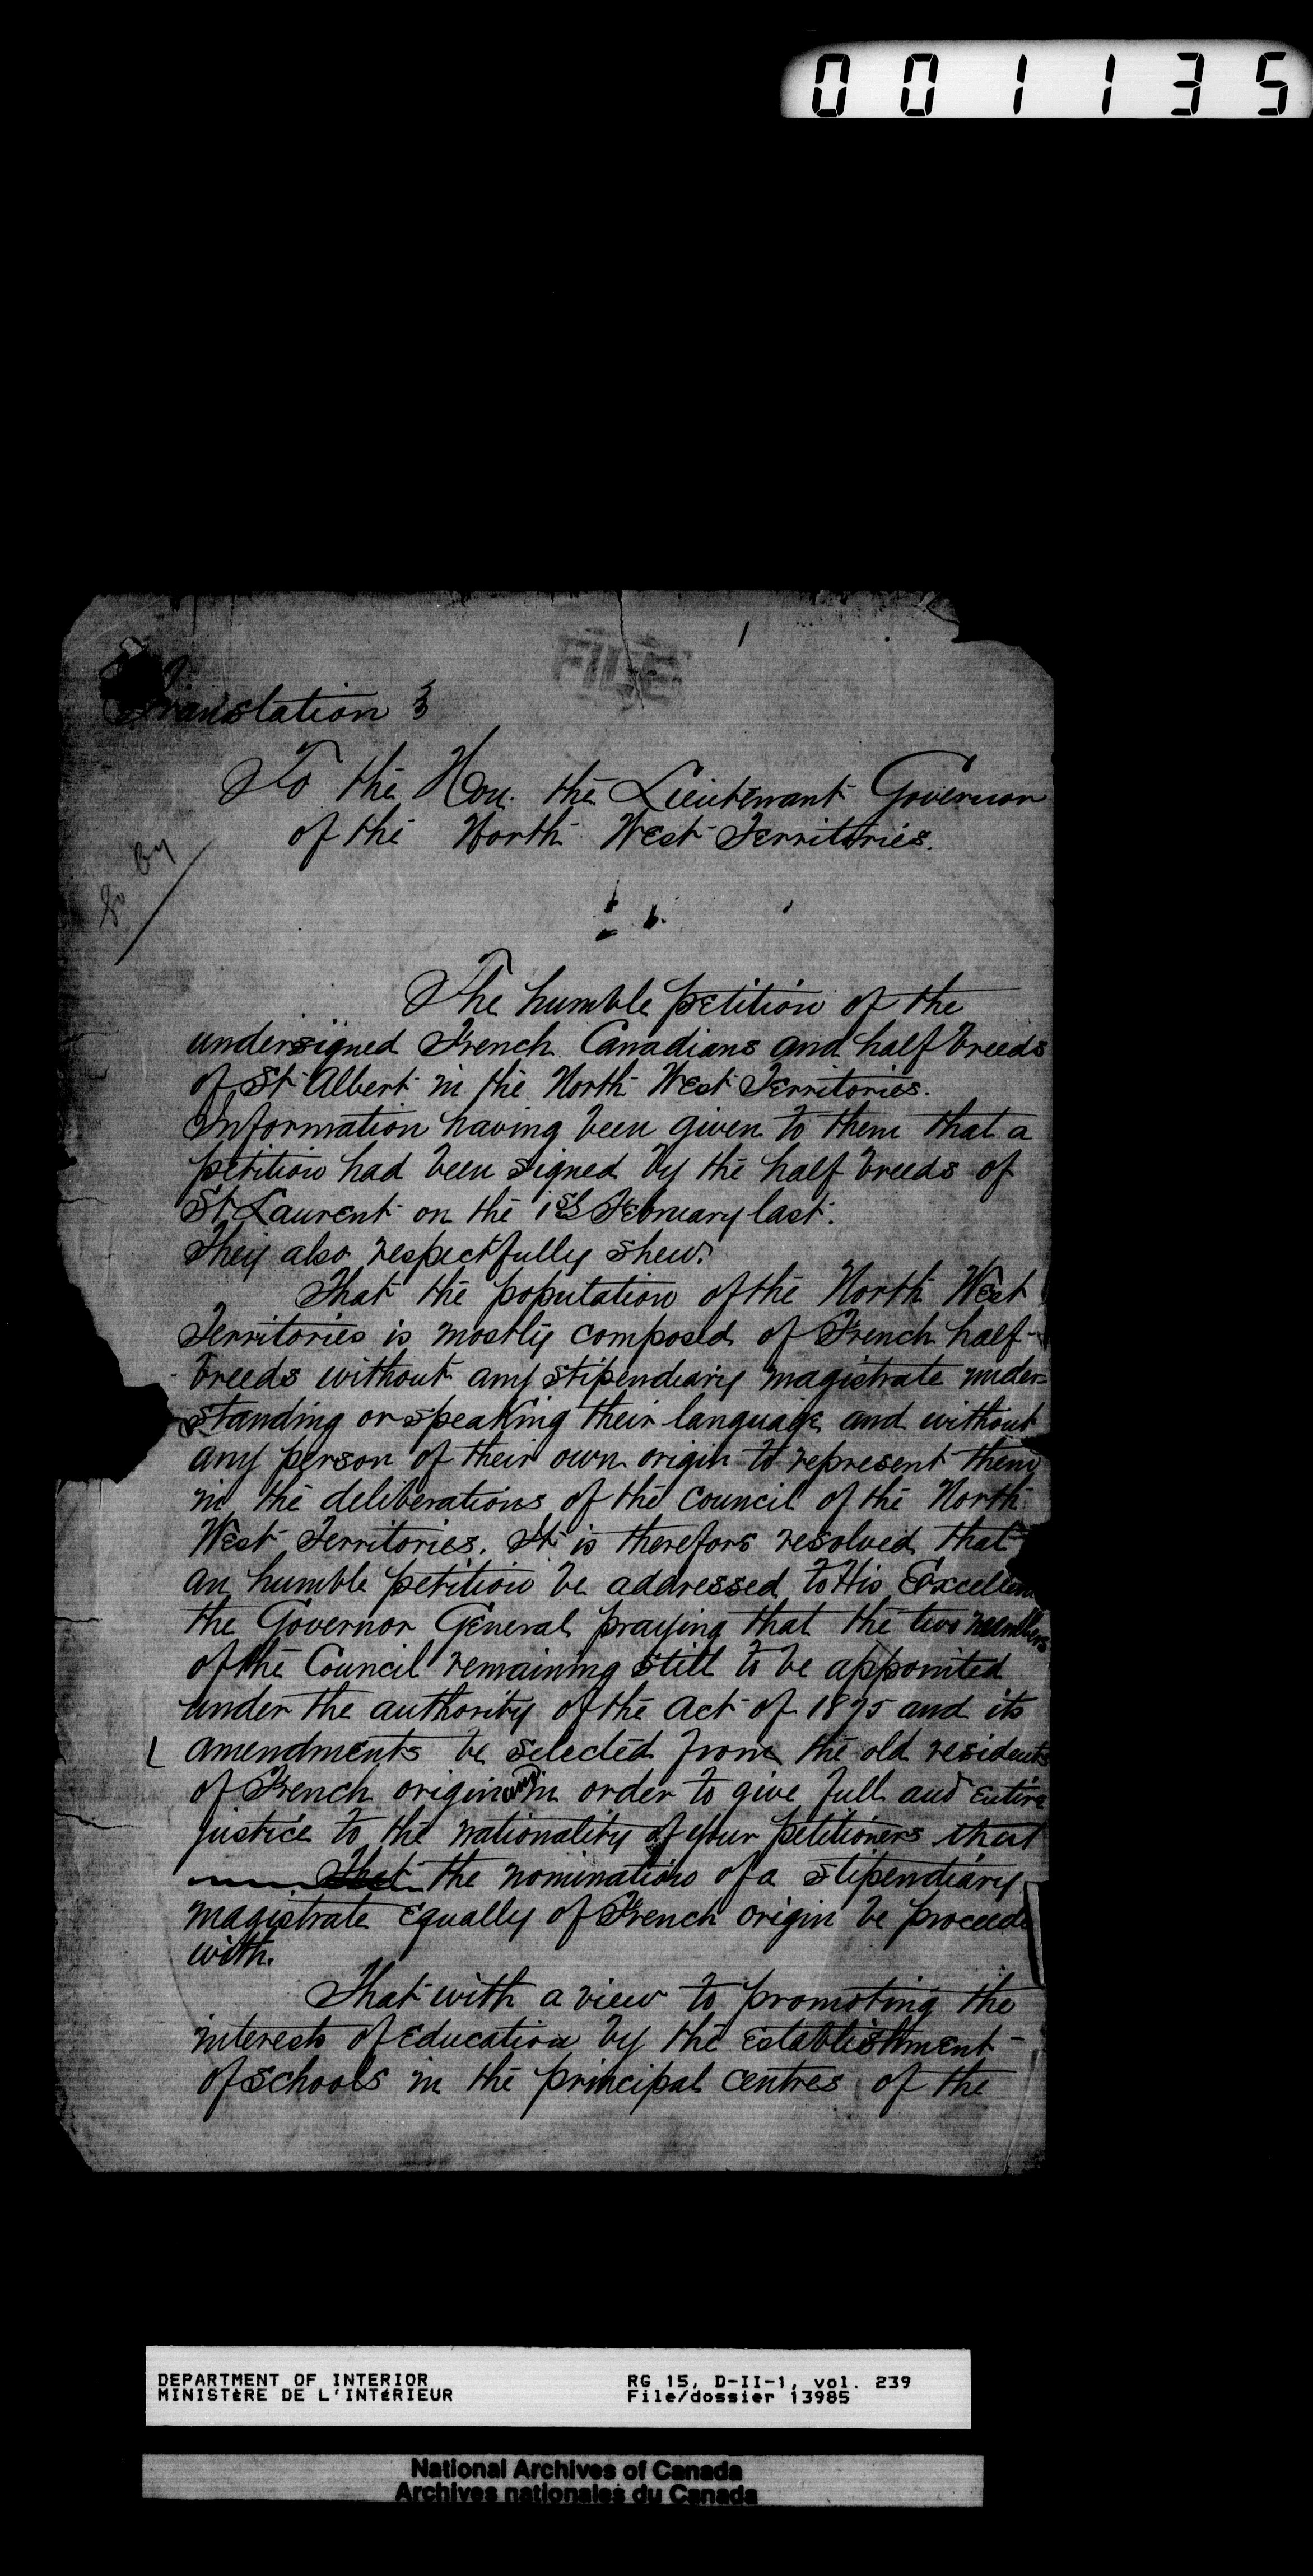 001135
FILE
1
Translation }
To the Hon. the Lieutenant Governor
of the North West Territories.
The humble petition of the
undersigned French Canadians and half breeds
of St Albert in the North West Territories.
Information having been given to them that a
petition had been signed by the half breeds of
St Laurent on the 1st February last.
They also respectfully shew.
That the population of the North West
Territories is mostly composed of French half-
breeds without any stipendiary magistrate under=
standing or speaking their language and without
any person of their own origin to represent them
in the deliberations of the Council of the North
West Territories. It is therefore resolved that
an humble petition be addressed to His Excellen
the Governor General praying that the two members
of the Council remaining still to be appointed
under the authority of the Act of 1875 and its
amendments be selected from the old residents
of French origin and in order to give full and entire
justice to the nationality of your petitioners that
That the nomination of a stipendiary
magistrate equally of French origin be proceede
with.
That with a view to promoting the
interests of education by the establishment
of schools in the principal centres of the
DEPARTMENT OF INTERIOR RG 15, D-II-1, vol. 239
MINISTÈRE DE L'INTÉRIEUR File/dossier 13985
National Archives of Canada
Archives nationales du Canada